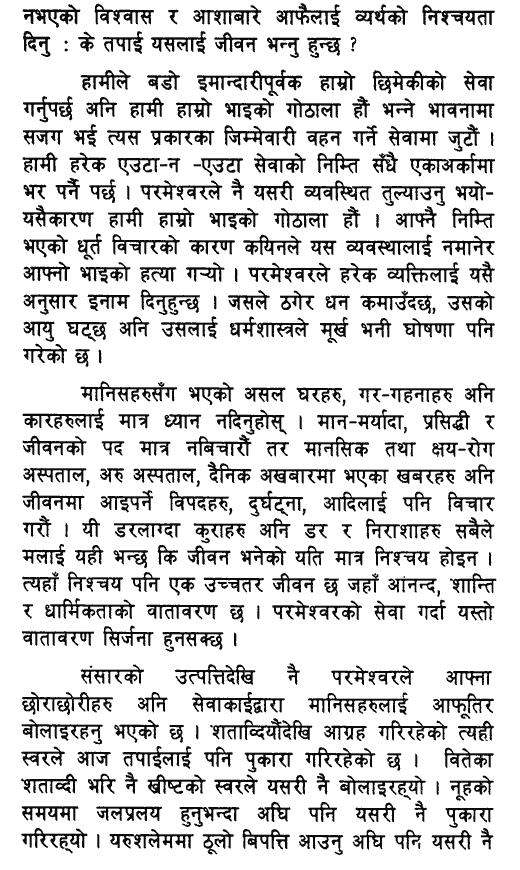 नभएको विश्वास र आशाबारे आफैलाई व्यर्थको निश्चयता
दिनु : के तपाई यसलाई जीवन भन्नु हुन्छ ?
हामीले बडो इमान्दारीपूर्वक हाम्रो छिमेकीको सेवा
गर्नुपर्छ अनि हामी हाम्रो भाइको गोठाला हौं भन्ने भावनामा
सजग भई त्यस प्रकारका जिम्मेवारी वहन गर्ने सेवामा जुटौं ।
हामी हरेक एउटा-न -एउटा सेवाको निम्ति सँधै एकाअर्कामा
भर पर्नै पर्छ । परमेश्वरले नै यसरी व्यवस्थित तुल्याउनु भयो-
यसैकारण हामी हाम्रो भाइको गोठाला हौं । आफ्नै निम्ति
भएको धूर्त विचारको कारण कयिनले यस व्यवस्थालाई नमानेर
आफ्नो भाइको हत्या गर्‍यो । परमेश्वरले हरेक व्यक्तिलाई यसै
अनुसार इनाम दिनुहुन्छ । जसले ठगेर धन कमाउँदछ, उसको
आयु घट्छ अनि उसलाई धर्मशास्त्रले मूर्ख भनी घोषणा पनि
गरेको छ ।
मानिसहरुसँग भएको असल घरहरु, गर-गहनाहरु अनि
कारहरुलाई मात्र ध्यान नदिनुहोस् । मान-मर्यादा, प्रसिद्धी र
जीवनको पद मात्र नबिचारौं तर मानसिक तथा क्षय-रोग
अस्पताल, अरु अस्पताल, दैनिक अखबारमा भएका खबरहरु अनि
जीवनमा आइपर्ने विपदहरु, दुर्घट्ना, आदिलाई पनि विचार
गरौं । यी डरलाग्दा कुराहरु अनि डर र निराशाहरु सबैले
मलाई यही भन्छ कि जीवन भनेको यति मात्र निश्चय होइन ।
त्यहाँ निश्चय पनि एक उच्चतर जीवन छ जहाँ आनन्द, शान्ति
र धार्मिकताको वातावरण छ । परमेश्वरको सेवा गर्दा यस्तो
वातावरण सिर्जना हुनसक्छ ।
संसारको उत्पत्तिदेखि नै परमेश्वरले आफ्ना
छोराछोरीहरु अनि सेवाकाईद्वारा मानिसहरुलाई आफूतिर
बोलाइरहनु भएको छ । शताव्दियौंदेखि आग्रह गरिरहेको त्यही
स्वरले आज तपाईलाई पनि पुकारा गरिरहेको छ । वितेका
शताव्दी भरि नै ख्रीष्टको स्वरले यसरी नै बोलाइरह्यो । नूहको
समयमा जलप्रलय हुनुभन्दा अघि पनि यसरी नै पुकारा
गरिरह्यो । यरुशलेममा ठूलो बिपत्ति आउनु अघि पनि यसरी नै